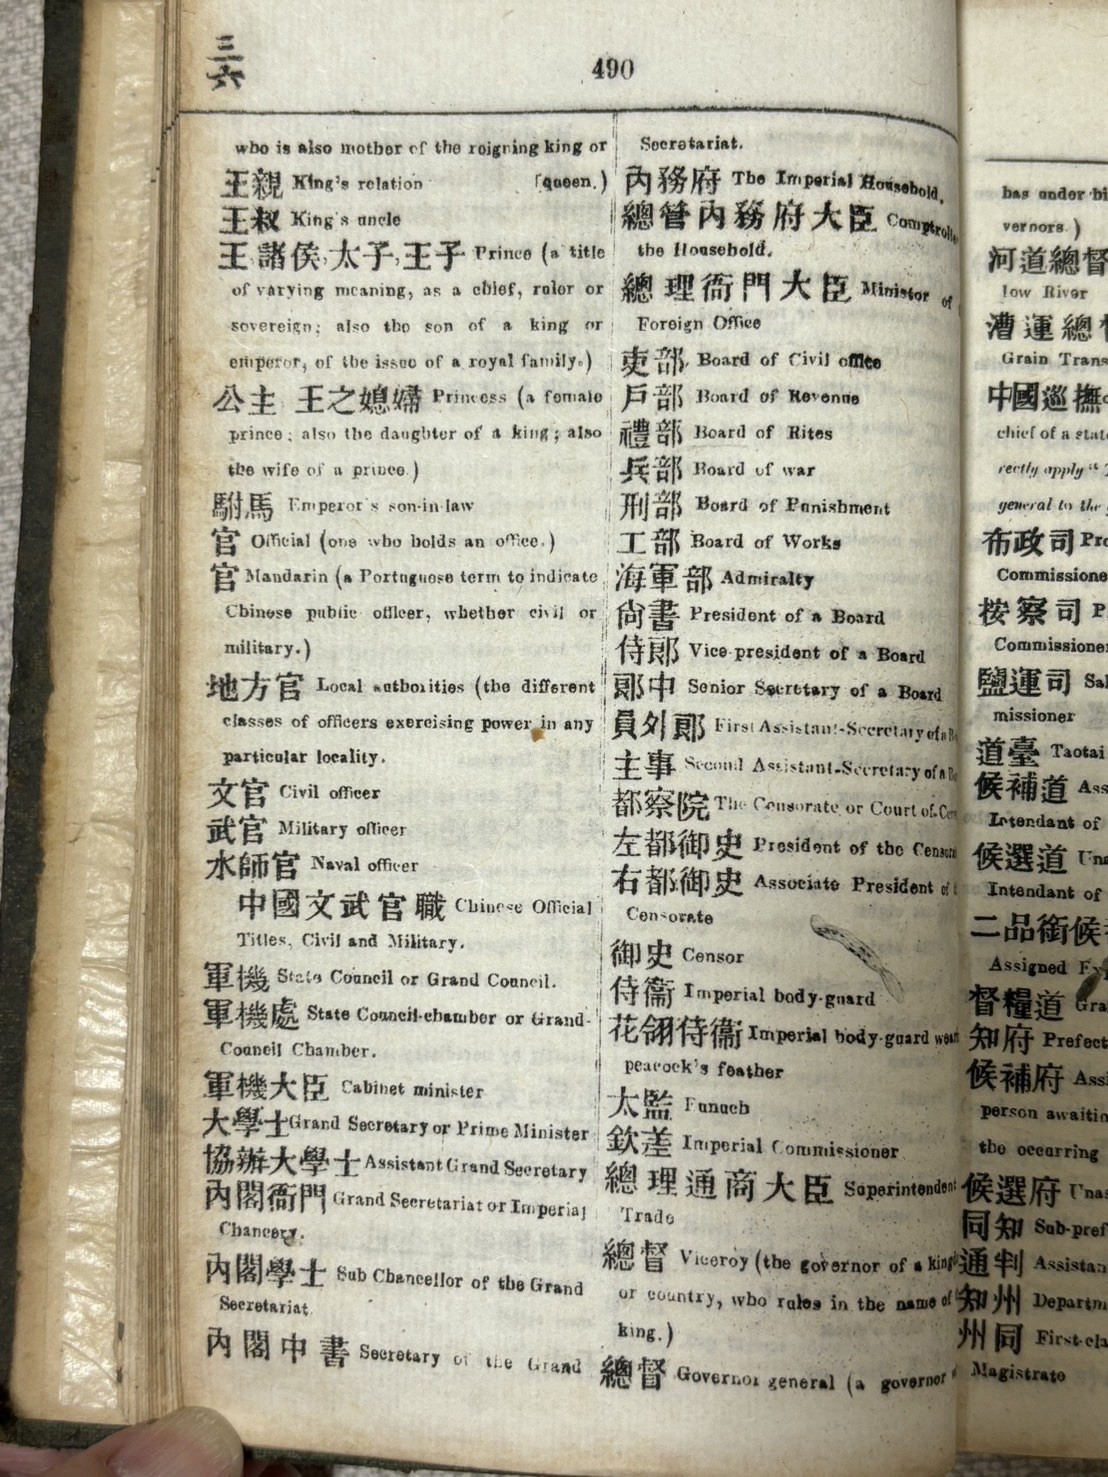 三六
490
who is also mother of the reigning king or
王親 King's relation [queen.)
王叔 King's uncle
王,諸侯,太子,王子 Prince (a title
of varying meaning, as a chief, ruler or
sovereign; also the son of a king or
emperor, of the issue of a royal family.)
公主 王之媳婦 Princess (a female
prince; also the daughter of a king; also
the wife of a prince.)
駙馬 Emperor's son-in-law
官 Official (one who holds an office.)
官 Mandarin (a Portuguese term to indicate
Chinese public officer, whether civil or
military.)
地方官 Local authorities (the different
classes of officers exercising power in any
particular locality.
文官 Civil officer
武官 Military officer
水師官 Naval officer
中國文武官職 Chinese Official
Titles, Civil and Military.
軍機 State Council or Grand Council.
軍機處 State Council-chamber or Grand-
Council Chamber.
軍機大臣 Cabinet minister
大學士 Grand Secretary or Prime Minister
協辦大學士 Assistant Grand Secretary
內閣衙門 Grand Secretariat or Imperial
Chancery.
內閣學士 Sub Chancellor of the Grand
Secretariat
內閣中書 Secretary of the Grand
Secretariat.
內務府 The Imperial Household.
總管內務府大臣 Comptroller
the Household.
總理衙門大臣 Minister of
Foreign Office
吏部 Board of Civil office
戶部 Board of Revenue
禮部 Board of Rites
兵部 Board of war
刑部 Board of Punishment
工部 Board of Works
海軍部 Admiralty
尙書 President of a Board
侍郞 Vice-president of a Board
郞中 Senior Secretary of a Board
員外郞 First Assistant-Secretary of a
主事 Second Assistant-Secretary of a
都察院 The Censorate or Court of
左都御史 President of the
右都御史 Associate President of
Censorate
御史 Censor
侍衞 Imperial body-guard
花翎侍衞 Imperial body-guard
peacock's feather
太監 Eunuch
欽差 Imperial Commissioner
總理通商大臣 Superintendent
Trade
總督 Viceroy (the governor of a
or country, who rules in the name of
king.)
總督 Governor general (a governor
has under
vernors.)
河道總督
low River
漕運總
Grain
中國巡撫
chief of a
rectly apply "
general to the
布政司
按察司
鹽運司
missioner
道臺 Taotai
候補道
Intendant of
候選道
Intendant of
二品銜候
Assigned
督糧道
知府 Prefect
候補府
person
the occurring
候選府
同知
通判
知州
州同
Magistrate